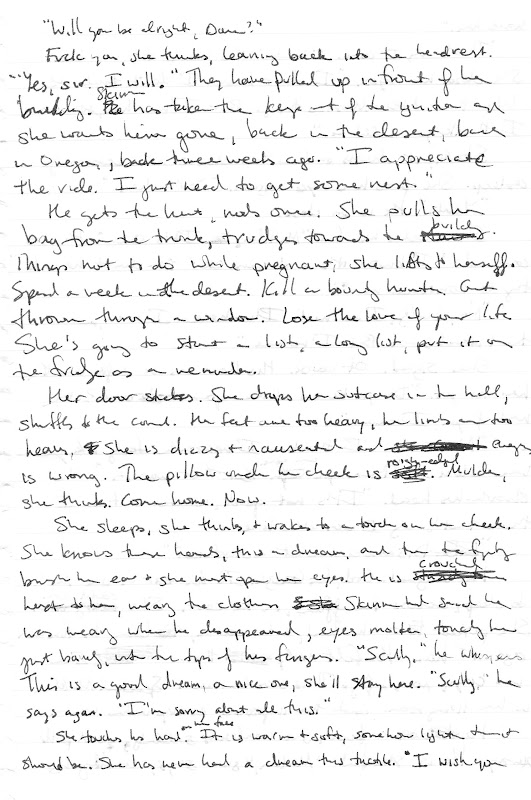 "Will you be alright, Dana?"
Fuck you, she thinks, leaning back into the headrest.
"Yes, sir. I will." They have pulled up in front of her
building. Skinner has taken the keys out of the ignition and
she wants him gone, back in the desert, back
in Oregon, back three weeks ago. "I appreciate
the ride. I just need to get some rest."
He gets the hint, nods once. She pulls her
bag from the trunk, trudges towards the building.
Things not to do while pregnant, she lists to herself.
Spend a week in the desert. Kill a bounty hunter. Get
thrown through a window. Lose the love of your life.
She's going to start a list, a long list, put it on
the fridge as a reminder.
Her door sticks. She drops her suitcase in the hall,
shuffles to the couch. Her feet are too heavy, her limbs are too
heavy, & She is dizzy + nauseated and
is wrong. The pillow under her cheek is rough-edged. Mulder,
she thinks. Come home. Now.
She sleeps, she thinks, + wakes to a touch on her cheek.
She knows these hands, this dream, and then the fingers
brush her ear + she must open her eyes. He is crouched
next to her, wearing the clothes Skinner had said he
was wearing when he disappeared, eyes molten, touching her
just barely, with the tips of his fingers. "Scully," he whispers.
This is a good dream, a nice one, she'll stay here. "Scully," he
says again. "I'm sorry about all this."
She touches his hand on her face. It is warm + soft, somehow lighter than it
should be. She has never had a dream this tactile. "I wish you